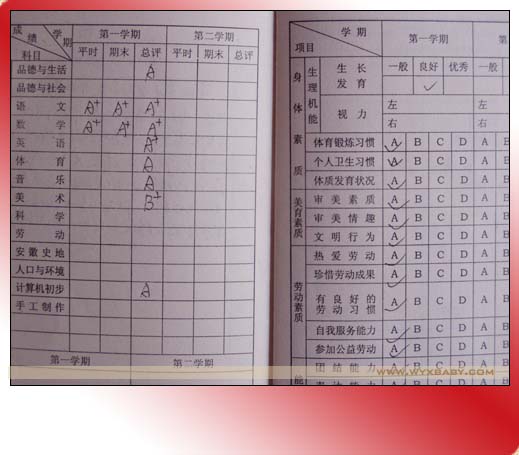 成绩 学期 科目 第一学期 第二学期
平时 期末 总评 平时 期末 总评
品德与生活 A
品德与社会
语文 A+ A+ A+
数学 A+ A+ A+
英语 A+
体育 A
音乐 A
美术 B+
科学
劳动
安徽史地
人口与环境
计算机初步 A
手工制作
第一学期 第二学期
学期 项目 第一学期 第
一般 良好 优秀 一般
身体素质 生理机能 生长发育 ✓
视力 左 左
右 右
体育锻炼习惯 A B C D A B
个人卫生习惯 A B C D A B
体质发育状况 A B C D A B
美育素质 审美素质 A B C D A B
审美情趣 A B C D A B
文明行为 A B C D A B
劳动素质 热爱劳动 A B C D A B
珍惜劳动成果 A B C D A B
有良好的劳动习惯 A B C D A B
自我服务能力 A B C D A B
参加公益劳动 A B C D A B
能 团结能力 A B C D A B
WWW.WYXBABY.COM